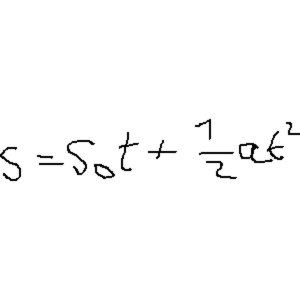 s = s₀t + ½at²